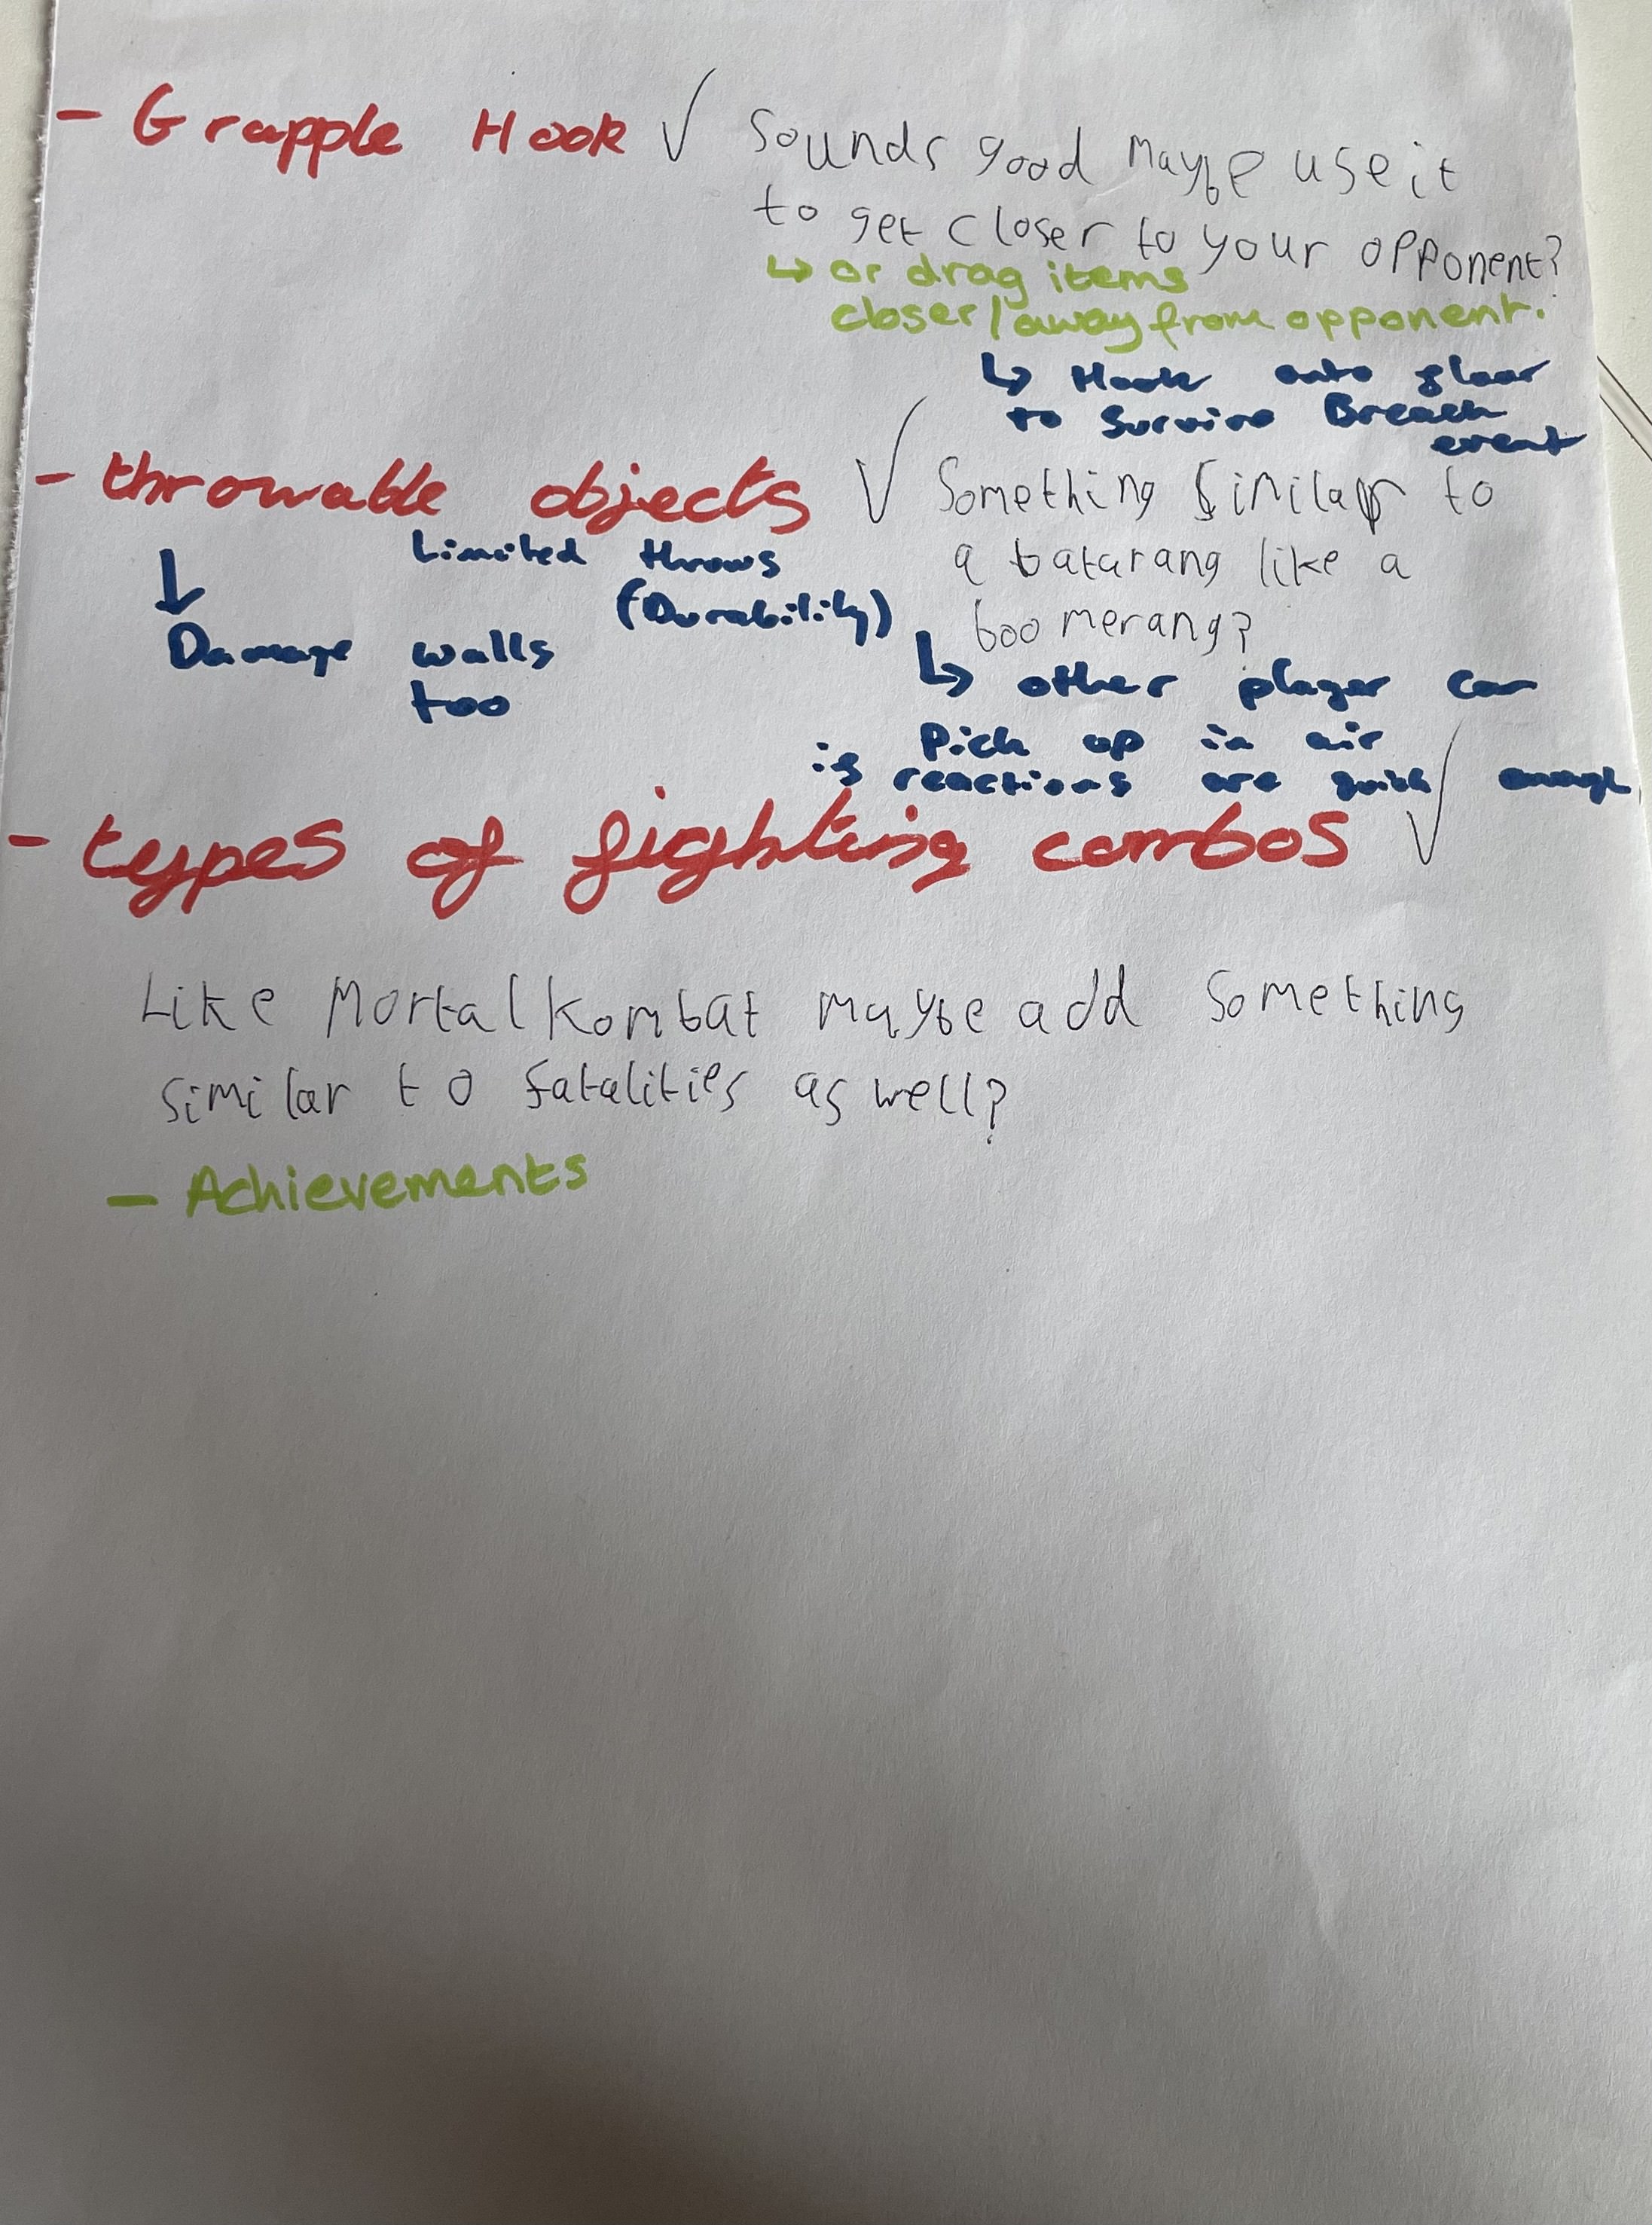 - Grapple Hook ✓ Sounds good maybe use it
to get closer to your opponent?
↳ or drag items
closer/away from opponent.
↳ Hook onto floor
to Survive Breach
event
- throwable objects ✓ Something Similar to
a batarang like a
boomerang?
Limited throws
(Durability)
↓
Damage walls
too
↳ other player can
Pick up in air
if reactions are quick enough
- types of fighting combos ✓
Like Mortal Kombat maybe add something
similar to fatalities as well?
- Achievements